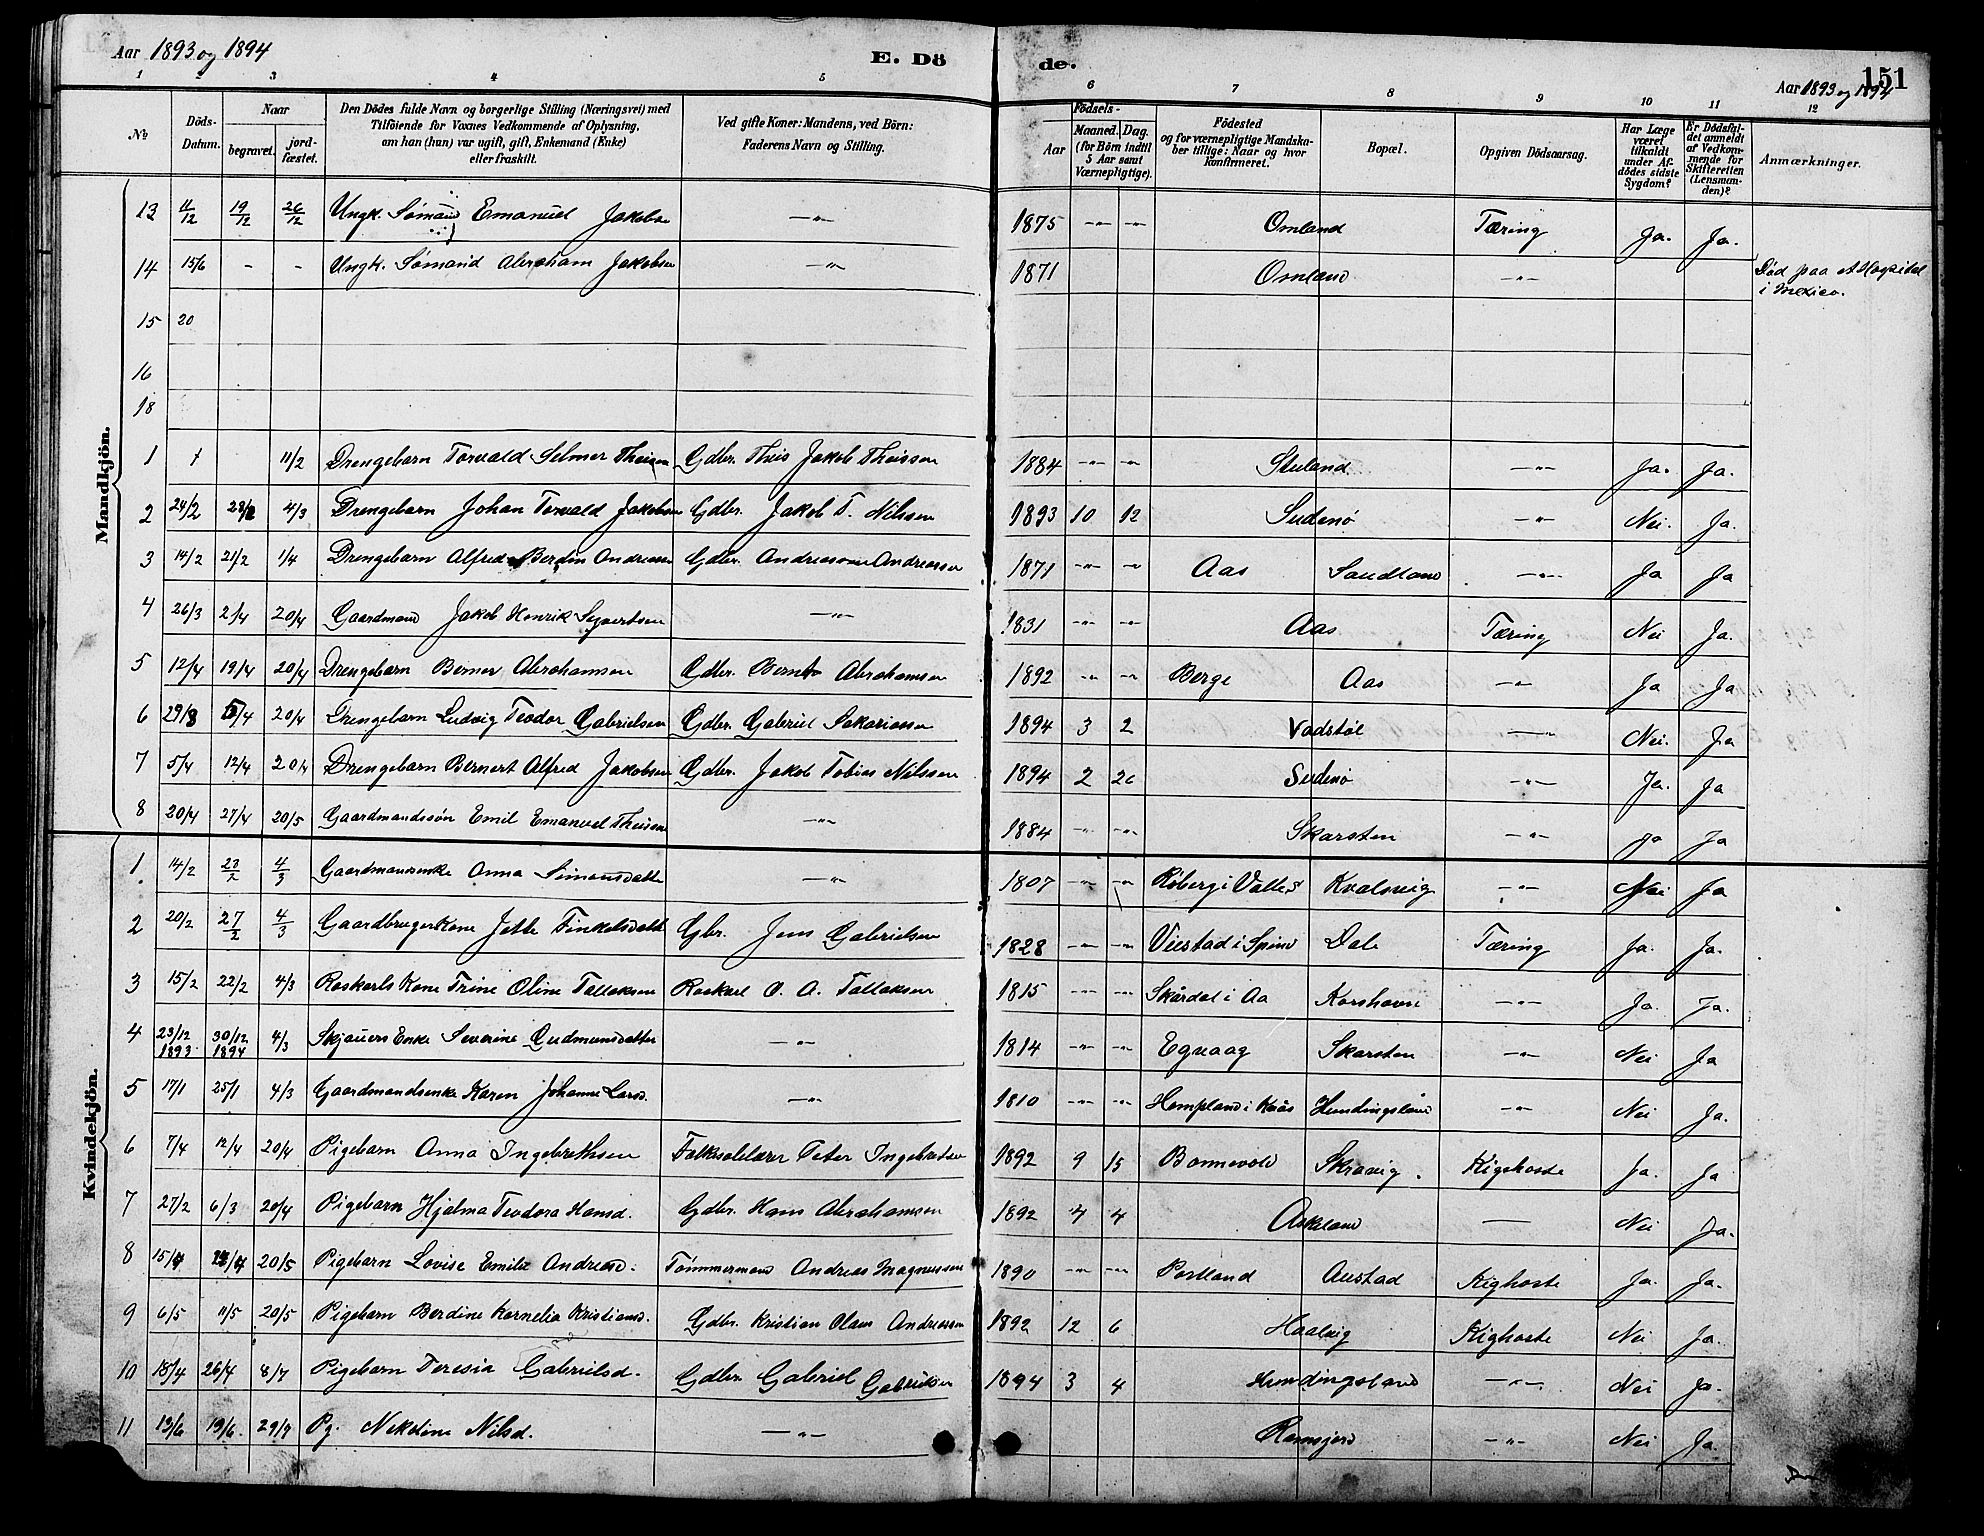 Aar 1893 og 1894
E. Dö
de.
Aar 1893 og 1894
151
1 2 3 4 5 6 7 8 9 10 11 12
No
Döds-Datum.
Naar
begravet.
jord-fæstet.
Den Dödes fulde Navn og borgerlige Stilling (Næringsvei) med
Tilföiende for Voxnes Vedkommende af Oplysning,
om han (hun) var ugift, gift, Enkemand (Enke)
eller fraskilt.
Ved gifte Koner: Mandens, ved Börn:
Faderens Navn og Stilling.
Födsels-
Aar
Maaned. Dag.
(for Börn indtil
5 Aar samt
Værnepligtige).
Födested
og for værnepligtige Mandska-
ber tillige: Naar og hvor
konfirmeret.
Bopæl.
Opgiven Dödsaarsag.
Har Læge
været
tilkaldt
under Af-
dödes sidste
Sygdom?
Er Dödsfal-
det anmeldt
af Vedkom-
mende for
Skifteretten
(Lensman-
den)?
Anmærkninger.
Mandkjön.
13 11/12 19/12 26/12 Ungk. Sømand Emanuel Jakobsen —"— 1875 —"— —"— Omland Tæring Ja. Ja.
14 15/6 - - Ungk. Sømand Abraham Jakobsen —"— 1871 Omland —"— Død paa et Hospital
i Mexico.
15 20
16
18
1 11/2 Drengebarn Torvald Selmer Theisen Gdbr. Theis Jakob Theissen 1884 —"— —"— Stuland —"— Ja. Ja.
2 24/2 28/2 4/3 Drengebarn Johan Torvald Jakobsen Gdbr. Jakob T. Nilssen 1893 10 12 —"— Nei. Ja.
3 14/2 21/2 1/4 Drengebarn Alfred Berdin Andreassen Gdbr. Andreassen 1871 —"— —"— Aas Sandland —"— Ja Ja
4 26/3 2/4 20/4 Gaardmand Jakob Henrik Syvertsen —"— 1831 —"— —"— Aas Tæring Nei Ja.
5 12/4 19/4 20/4 Drengebarn Berner Abrahamsen Gdbr. Bernt Abrahamsen 1892 —"— —"— Berge Aas —"— Ja Ja
6 29/3 5/4 20/4 Drengebarn Ludvig Teodor Gabrielsen Gdbr. Gabriel Sakariassen 1894 3 2 Vadstøl —"— Nei. Ja
7 5/4 12/4 20/4 Drengebarn Bernert Alfred Jakobsen Gdbr. Jakob Tobias Nilssen 1894 2 26 —"— Ja. Ja
8 20/4 27/4 20/5 Gaardmandssön Emil Emanuel Theisen —"— 1884 —"— —"— Skarsten —"— Ja Ja
Kvindekjön.
1 14/2 23/2 4/3 Gaardmandsenke Anna Simonsdatter —"— 1807 —"— —"— Røberg i Valle Kvalsvig —"— Nei Ja
2 20/2 27/2 4/3 Gaardbruger Kone Jette Tinkelsdatt Gbr. Jens Gabrielsen 1828 —"— —"— Viestad i Spind Dale Tæring Ja. Ja.
3 15/2 22/2 4/3 Raskarls Kone Trine Oline Tallaksen Raskarl O. A. Tallaksen 1815 —"— —"— Skårdal i Aa Korshavn —"— Ja. Ja.
4 23/12 1893 30/12 1894 4/3 Skjauers Enke Severine Gudmunsdatter —"— 1814 —"— —"— Egvaag Skarsten —"— Nei Ja
5 17/1 25/1 4/3 Gaardmandsenke Karen Johanne Larsd. —"— 1810 —"— —"— Hundingsland —"— Nei Ja.
6 7/4 12/4 20/4 Pigebarn Anna Ingebrethsen Peter Ingebretsen 1892 9 15 Bonnevold Skravig. Kighoste Ja. Ja
7 27/2 6/3 20/4 Pigebarn Hjalma Teodora Hansd. Gdbr. Hans Abrahamsen 1892 4 4 Askeland —"— Nei Ja.
8 15/4 /4 20/5 Pigebarn Lovise Emilie Andreasd. Tømmermand Andreas Magnussen 1890 —"— —"— Portland Austad Kighoste Ja. Ja.
9 6/5 11/5 20/5 Pigebarn Berdine Kornelia Kristiansd. Gdbr. Kristian Olaus Andreassen 1892 12 6 Haalvig Kighoste Nei Ja.
10 18/4 26/4 8/7 Pigebarn Teresia Gabrielsd. Gdbr. Gabriel Gabrielsen 1894 3 4 Hundingsland —"— Nei Ja.
11 13/6 19/6 29/7 Pg. Nekoline Nilsd. —"— Ramsjord —"— Nei Ja